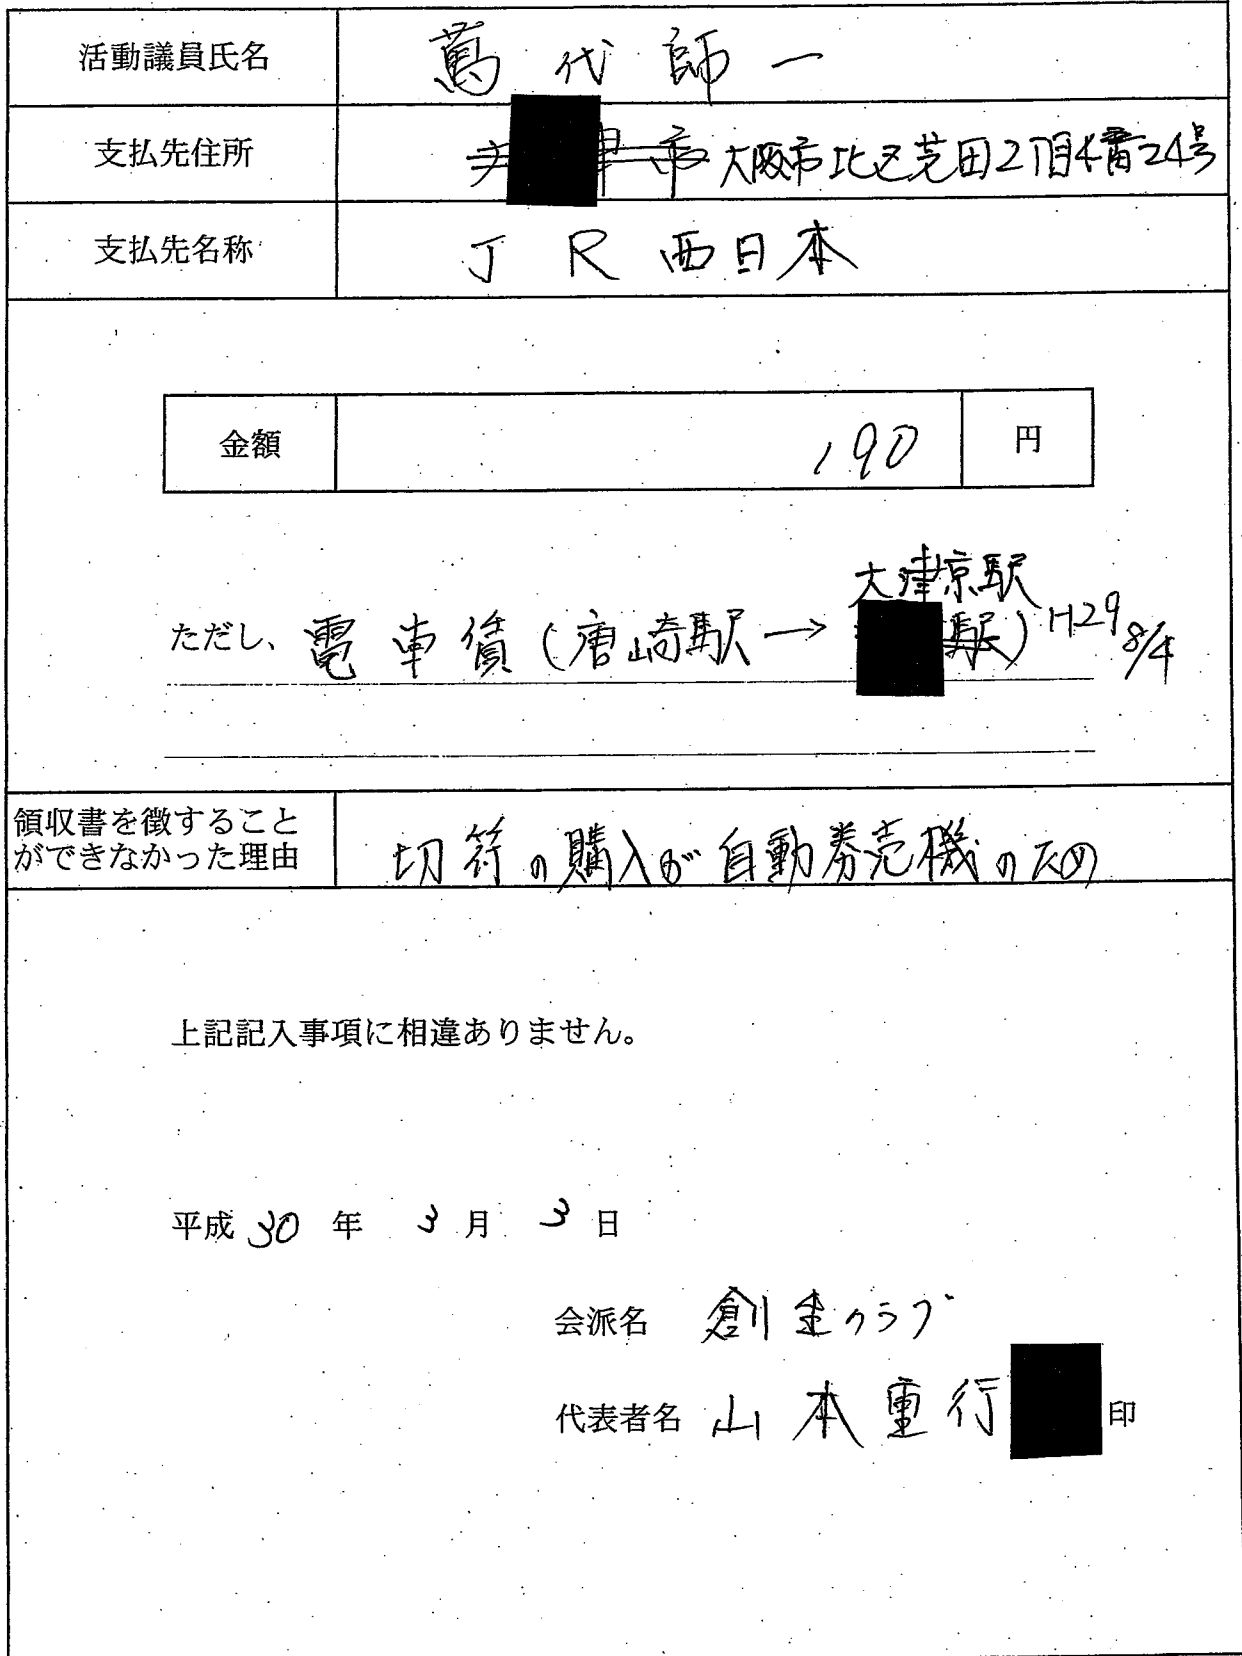 活動議員氏名 萬代師一
支払先住所 津市 大阪市北区芝田2丁目4番24号
支払先名称 JR西日本
金額 190 円
大津京駅
ただし、電車賃(唐崎駅→駅) H29 8/4
領収書を徴すること
ができなかった理由 切符の購入が自動券売機のため
上記記入事項に相違ありません。
平成30年3月3日
会派名 創生クラブ
代表者名 山本重行 印